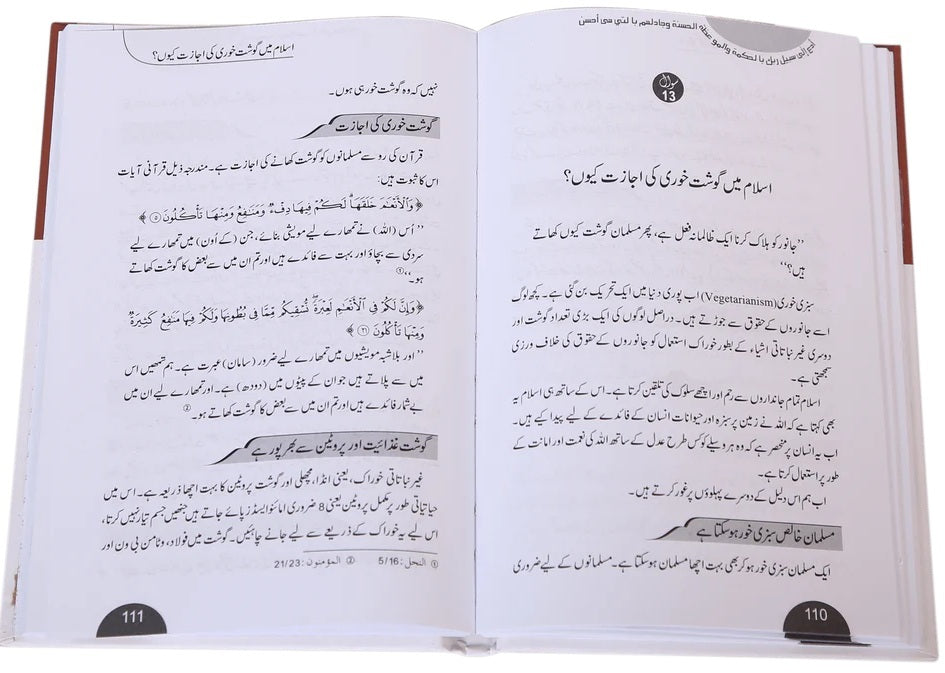 أدع إلى سبيل ربك بالحكمة والموعظة الحسنة وجادلهم بالتي هي أحسن
سوال
13
اسلام میں گوشت خوری کی اجازت کیوں؟
’’جانور کو ہلاک کرنا ایک ظالمانہ فعل ہے، پھر مسلمان گوشت کیوں کھاتے
ہیں؟‘‘
سبزی خوری (Vegetarianism) اب پوری دنیا میں ایک تحریک بن گئی ہے۔ کچھ لوگ
اسے جانوروں کے حقوق سے جوڑتے ہیں۔ دراصل لوگوں کی ایک بڑی تعداد گوشت اور
دوسری غیر نباتاتی اشیاء کے بطور خوراک استعمال کو جانوروں کے حقوق کی خلاف ورزی
سمجھتی ہے۔
اسلام تمام جانداروں سے رحم اور اچھے سلوک کی تلقین کرتا ہے۔ اس کے ساتھ ہی اسلام یہ
بھی کہتا ہے کہ اللہ نے زمین پر سبزہ اور حیوانات انسان کے فائدے کے لیے پیدا کیے ہیں۔
اب یہ انسان پر منحصر ہے کہ وہ ہر وسیلے کو کس طرح عدل کے ساتھ اللہ کی نعمت اور امانت کے
طور پر استعمال کرتا ہے۔
اب ہم اس دلیل کے دوسرے پہلوؤں پر غور کرتے ہیں۔
مسلمان خالص سبزی خور ہو سکتا ہے
ایک مسلمان سبزی خور ہو کر بھی بہت اچھا مسلمان ہو سکتا ہے۔ مسلمانوں کے لیے ضروری
110
اسلام میں گوشت خوری کی اجازت کیوں؟
نہیں کہ وہ گوشت خور ہی ہوں۔
گوشت خوری کی اجازت
قرآن کی رو سے مسلمانوں کو گوشت کھانے کی اجازت ہے۔ مندرجہ ذیل قرآنی آیات
اس کا ثبوت ہیں:
﴿وَالْأَنْعَٰمَ خَلَقَهَا ۗ لَكُمْ فِيهَا دِفْءٌ وَمَنَٰفِعُ وَمِنْهَا تَأْكُلُونَ ۝٥﴾
’’اُس (اللہ) نے تمھارے لیے مویشی بنائے، جن (کے اُون) میں تمھارے لیے
سردی سے بچاؤ اور بہت سے فائدے ہیں اور تم ان میں سے بعض کا گوشت کھاتے
ہو۔‘‘①
﴿وَإِنَّ لَكُمْ فِي الْأَنْعَٰمِ لَعِبْرَةً ۖ نُّسْقِيكُم مِّمَّا فِي بُطُونِهَا وَلَكُمْ فِيهَا مَنَٰفِعُ كَثِيرَةٌ
وَمِنْهَا تَأْكُلُونَ ۝٢١﴾
’’اور بلاشبہ مویشیوں میں تمھارے لیے ضرور (سامان) عبرت ہے۔ ہم تمھیں اس
میں سے پلاتے ہیں جو ان کے پیٹوں میں (دودھ) ہے۔ اور تمھارے لیے ان میں
بے شمار فائدے ہیں اور تم ان میں سے بعض کا گوشت کھاتے ہو۔②
گوشت غذائیت اور پروٹین سے بھرپور ہے
غیر نباتاتی خوراک، یعنی انڈا، مچھلی اور گوشت پروٹین کا بہت اچھا ذریعہ ہے۔ اس میں
حیاتیاتی طور پر مکمل پروٹین یعنی 8 ضروری امائنو ایسڈز پائے جاتے ہیں جنھیں جسم تیار نہیں کرتا،
اس لیے یہ خوراک کے ذریعے سے لیے جانے چاہئیں۔ گوشت میں فولاد، وٹامن بی ون اور
① النحل: 5/16 ② المؤمنون: 21/23
111